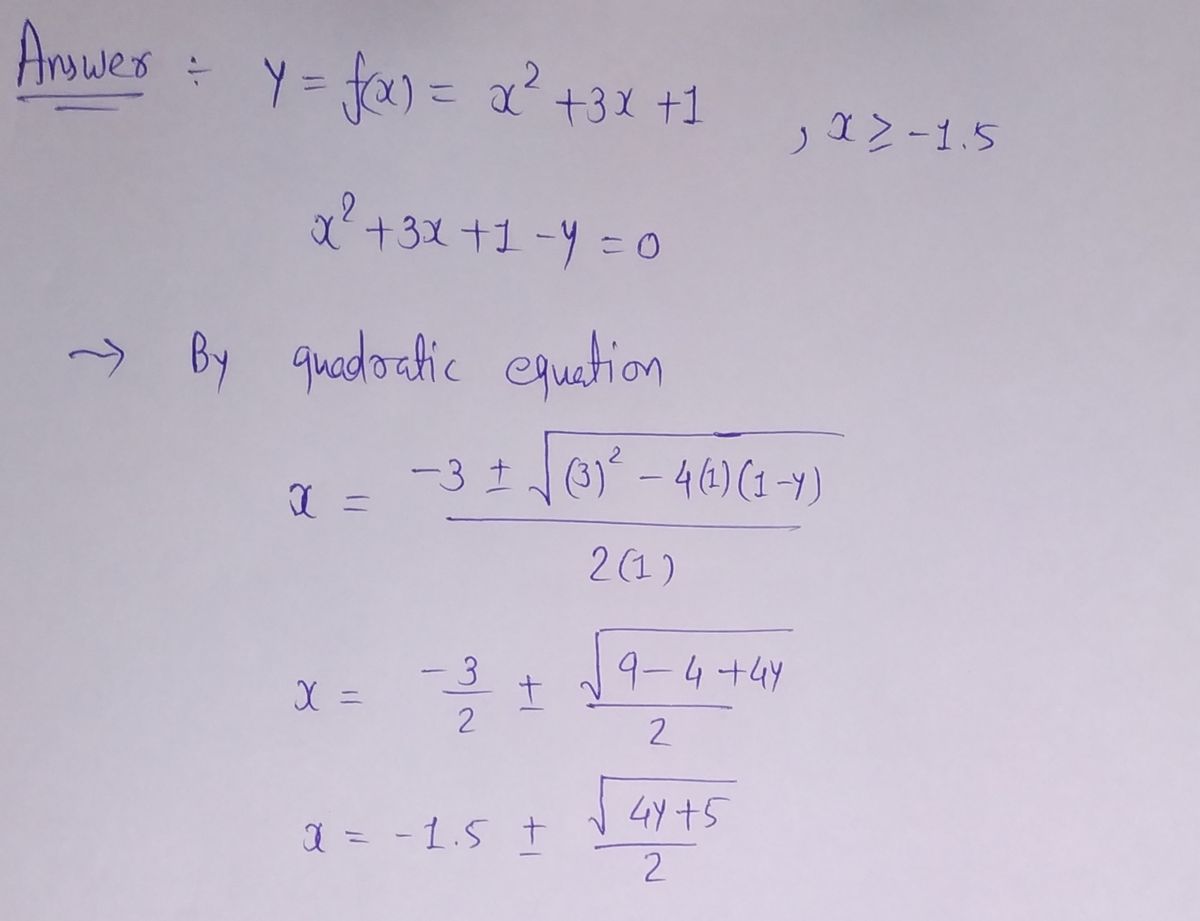 Answer ÷ y = f(x) = x² + 3x + 1 , x ≥ -1.5
x² + 3x + 1 - y = 0
→ By quadratic equation
x = (-3 ± √((3)² - 4(1)(1-y))) / 2(1)
x = -3/2 ± √(9 - 4 + 4y) / 2
x = -1.5 ± √(4y + 5) / 2